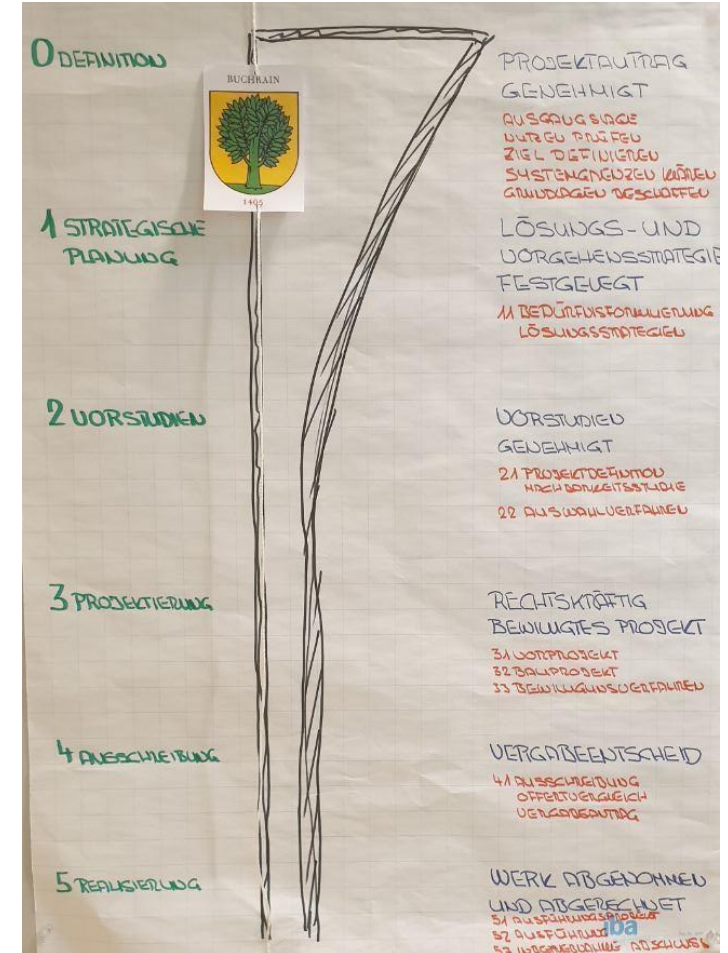 0 DEFINITION
BUCHRAIN
1495
PROJEKTAUTRAG
GENEHMIGT
AUSGANGSLAGE
NUTZEN PRÜFEN
ZIEL DEFINIEREN
SYSTEMGRENZEN KLÄREN
GRUNDLAGEN BESCHAFFEN
1 STRATEGISCHE
PLANUNG
LÖSUNGS- UND
VORGEHENSSTRATEGIE
FESTGELEGT
11 BEDÜRFNISFORMULIERUNG
LÖSUNGSSTRATEGIEN
2 VORSTUDIEN
VORSTUDIEN
GENEHMIGT
21 PROJEKTDEFINITION
MACHBARKEITSSTUDIE
22 AUSWAHLVERFAHREN
3 PROJEKTIERUNG
RECHTSKRÄFTIG
BEWILLIGTES PROJEKT
31 VORPROJEKT
32 BAUPROJEKT
33 BEWILLIGUNGSVERFAHREN
4 AUSSCHREIBUNG
VERGABEENTSCHEID
41 AUSSCHREIBUNG
OFFERTVERGLEICH
VERGABEANTRAG
5 REALISIERUNG
WERK ABGENOMMEN
UND ABGERECHNET
51 AUSFÜHRUNGSPROJEKT
iba
52 AUSFÜHRUNG
53 INBETRIEBNAHME ABSCHLUSS